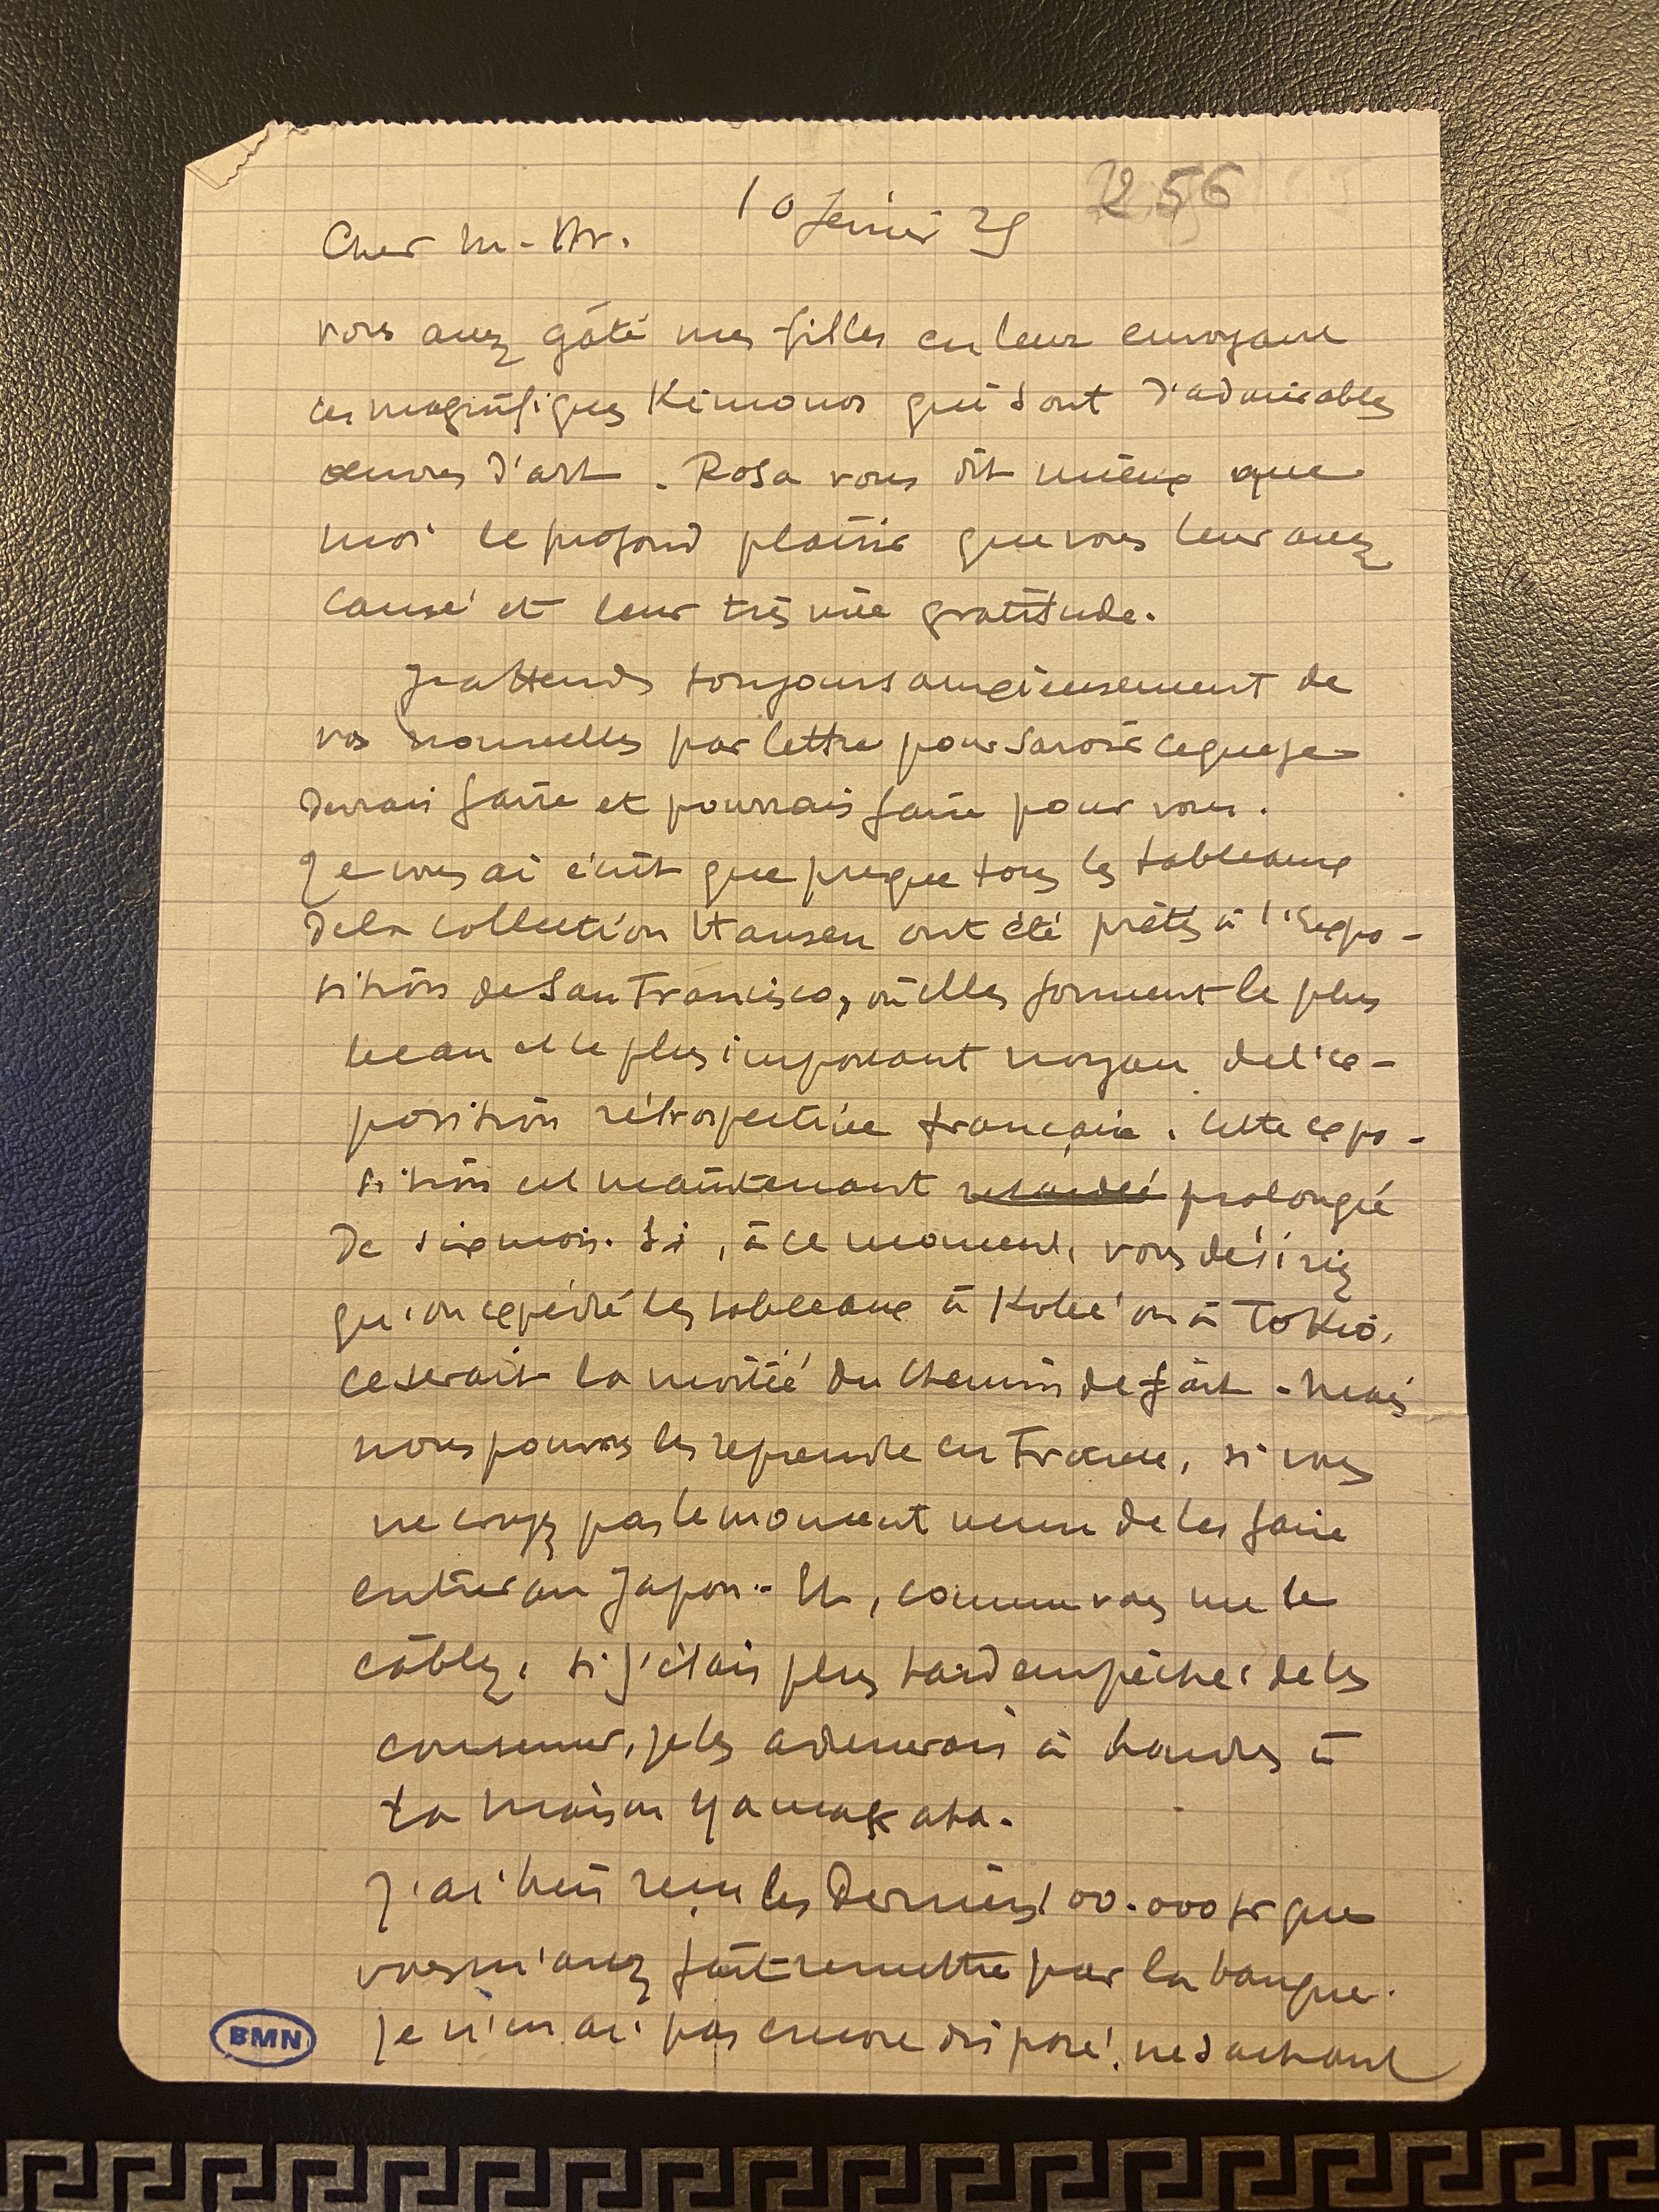 256
10 février 25
Cher M. Ar.
vous avez gâté mes filles en leur envoyant
ces magnifiques Kimonos qui sont d'admirables
œuvres d'art. Rosa vous dit mieux que
moi le profond plaisir que vous leur avez
causé et leur très vive gratitude.
J'attends toujours anxieusement de
vos nouvelles par lettre pour savoir ce que je
devrais faire et pourrais faire pour vous.
Je vous ai écrit que presque tous les tableaux
de la collection Hansen ont été prêtés à l'Expo-
sition de San Francisco, où elles forment le plus
beau et le plus important noyau de l'ex-
position rétrospective française. Cette expo-
sition est maintenant prolongée
de six mois. Si, à ce moment, vous désiriez
qu'on expédie les tableaux à Kobé ou à Tokio,
ce serait la moitié du chemin de fait. Mais
nous pouvons les reprendre en France, si vous
ne croyez pas le moment venu de les faire
entrer au Japon. Et, comme vous me le
câblez, si j'étais plus tard empêché de les
conserver, je les à Londres à
la maison Yamanaka.
J'ai bien reçu les derniers 100.000 fr que
vous m'avez fait remettre par la banque.
Je n'en ai pas encore disposé, ne sachant
BMN